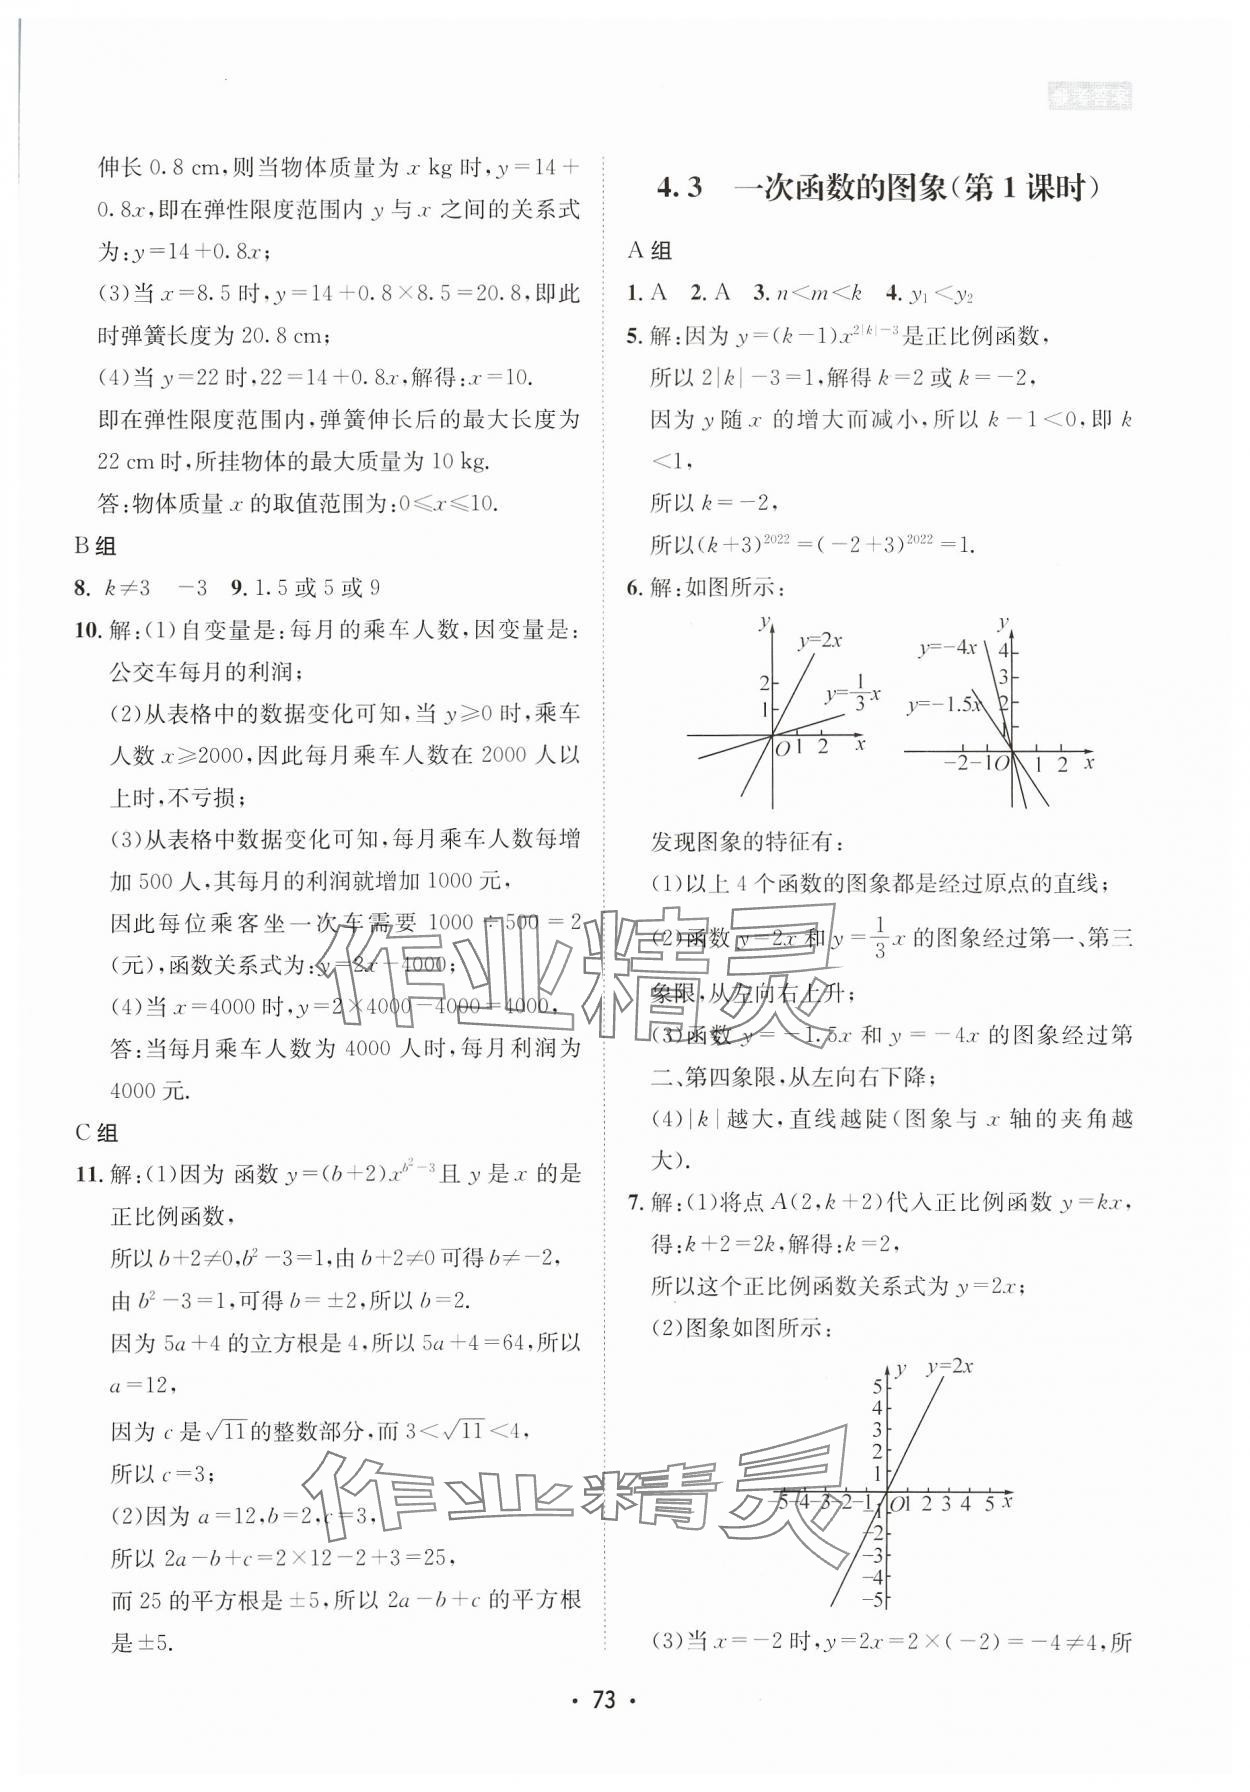 参考答案
伸长 0.8 cm,则当物体质量为 x kg 时,y=14+
0.8x,即在弹性限度范围内 y 与 x 之间的关系式
为:y=14+0.8x;
(3)当 x=8.5 时,y=14+0.8×8.5=20.8,即此
时弹簧长度为 20.8 cm;
(4)当 y=22 时,22=14+0.8x,解得:x=10.
即在弹性限度范围内,弹簧伸长后的最大长度为
22 cm 时,所挂物体的最大质量为 10 kg.
答:物体质量 x 的取值范围为:0⩽x⩽10.
B 组
8. k≠3 −3 9. 1.5 或 5 或 9
10. 解:(1)自变量是:每月的乘车人数,因变量是:
公交车每月的利润;
(2)从表格中的数据变化可知,当 y⩾0 时,乘车
人数 x⩾2000,因此每月乘车人数在 2000 人以
上时,不亏损;
(3)从表格中数据变化可知,每月乘车人数每增
加 500 人,其每月的利润就增加 1000 元,
因此每位乘客坐一次车需要 1000÷500=2
(元),函数关系式为:y=2x−4000;
(4)当 x=4000 时,y=2×4000−4000=4000,
答:当每月乘车人数为 4000 人时,每月利润为
4000 元.
C 组
11. 解:(1)因为 函数 y=(b+2)x^{b²−3}且 y 是 x 的是
正比例函数,
所以 b+2≠0,b²−3=1,由 b+2≠0 可得 b≠−2,
由 b²−3=1,可得 b=±2,所以 b=2.
因为 5a+4 的立方根是 4,所以 5a+4=64,所以
a=12,
因为 c 是√11的整数部分,而 3<√11<4,
所以 c=3;
(2)因为 a=12,b=2,c=3,
所以 2a−b+c=2×12−2+3=25,
而 25 的平方根是±5,所以 2a−b+c 的平方根
是±5.
4.3 一次函数的图象(第 1 课时)
A 组
1. A 2. A 3. n<m<k 4. y₁<y₂
5. 解:因为 y=(k−1)x^{2|k|−3}是正比例函数,
所以 2|k|−3=1,解得 k=2 或 k=−2,
因为 y 随 x 的增大而减小,所以 k−1<0,即 k
<1,
所以 k=−2,
所以(k+3)²⁰²²=(−2+3)²⁰²²=1.
6. 解:如图所示:
y y=2x 2 1 y=1/3x O 1 2 x
y y=−4x 4 3 y=−1.5x 2 1 −2 −1 O 1 2 x
发现图象的特征有:
(1)以上 4 个函数的图象都是经过原点的直线;
(2)函数 y=2x 和 y=1/3x 的图象经过第一、第三
象限,从左向右上升;
(3)函数 y=−1.5x 和 y=−4x 的图象经过第
二、第四象限,从左向右下降;
(4)|k|越大,直线越陡(图象与 x 轴的夹角越
大).
7. 解:(1)将点 A(2,k+2)代入正比例函数 y=kx,
得:k+2=2k,解得:k=2,
所以这个正比例函数关系式为 y=2x;
(2)图象如图所示:
y y=2x
5
4
3
2
1
−5−4−3−2−1 O1 2 3 4 5 x
−2
−3
−4
−5
(3)当 x=−2 时,y=2x=2×(−2)=−4≠4,所
作业精灵
作业精灵
· 73 ·